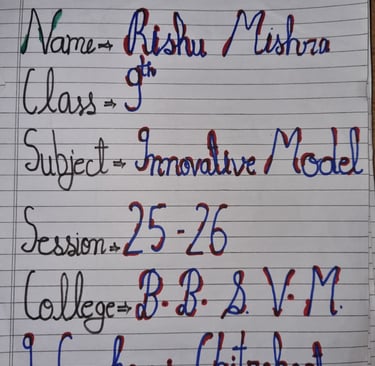 Name→ Rishu Mishra
Class→ 9th
Subject→ Innovative Model
Session→ 25-26
College→ B. B. S. V. M.